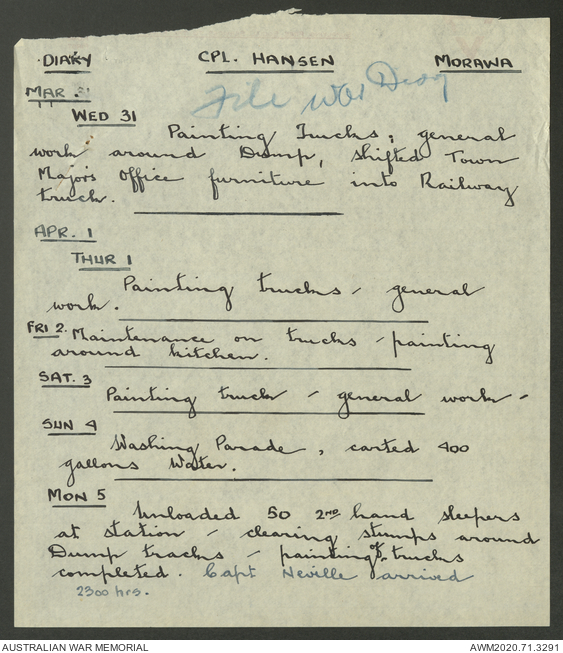 DIARY CPL. HANSEN MORAWA
File War Diary
MAR 31
WED 31
Painting Trucks, general
work around Dump, shifted Town
Majors Office furniture into Railway
truck.
APR. 1
THUR 1
Painting trucks - general
work.
FRI 2. Maintenance on trucks - painting
around kitchen.
SAT. 3
Painting truck - general work -
SUN 4
Washing Parade, carted 400
gallons Water.
MON 5
Unloaded 50 2ND hand sleepers
at station - clearing stumps around
Dump tracks - painting of trucks
completed. Capt Neville arrived
2300 hrs.
AUSTRALIAN WAR MEMORIAL AWM2020.71.3291